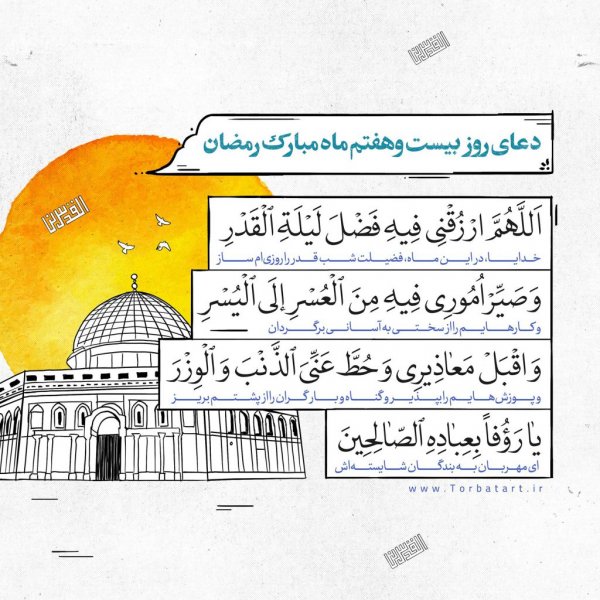 دعای روز بیست و هفتم ماه مبارک رمضان
اَللَّهُمَّ ارْزُقْنِی فِیهِ فَضْلَ لَیْلَةِ الْقَدْرِ
خدایا، در این ماه، فضیلت شب قدر را روزی‌ام ساز
وَ صَیِّرْ اُمُورِی فِیهِ مِنَ الْعُسْرِ إلَی الْیُسْرِ
و کارهایم را از سختی به آسانی برگردان
وَ اقْبَلْ مَعاذِیرِی وَ حُطَّ عَنِّیَ الذَّنْبَ وَ الْوِزْرَ
و پوزش‌هایم را بپذیر و گناه و بار گران را از پشتم بریز
یا رَؤُفاً بِعِبادِهِ الصّالِحِینَ
ای مهربان به بندگان شایسته‌اش
www.Torbatart.ir